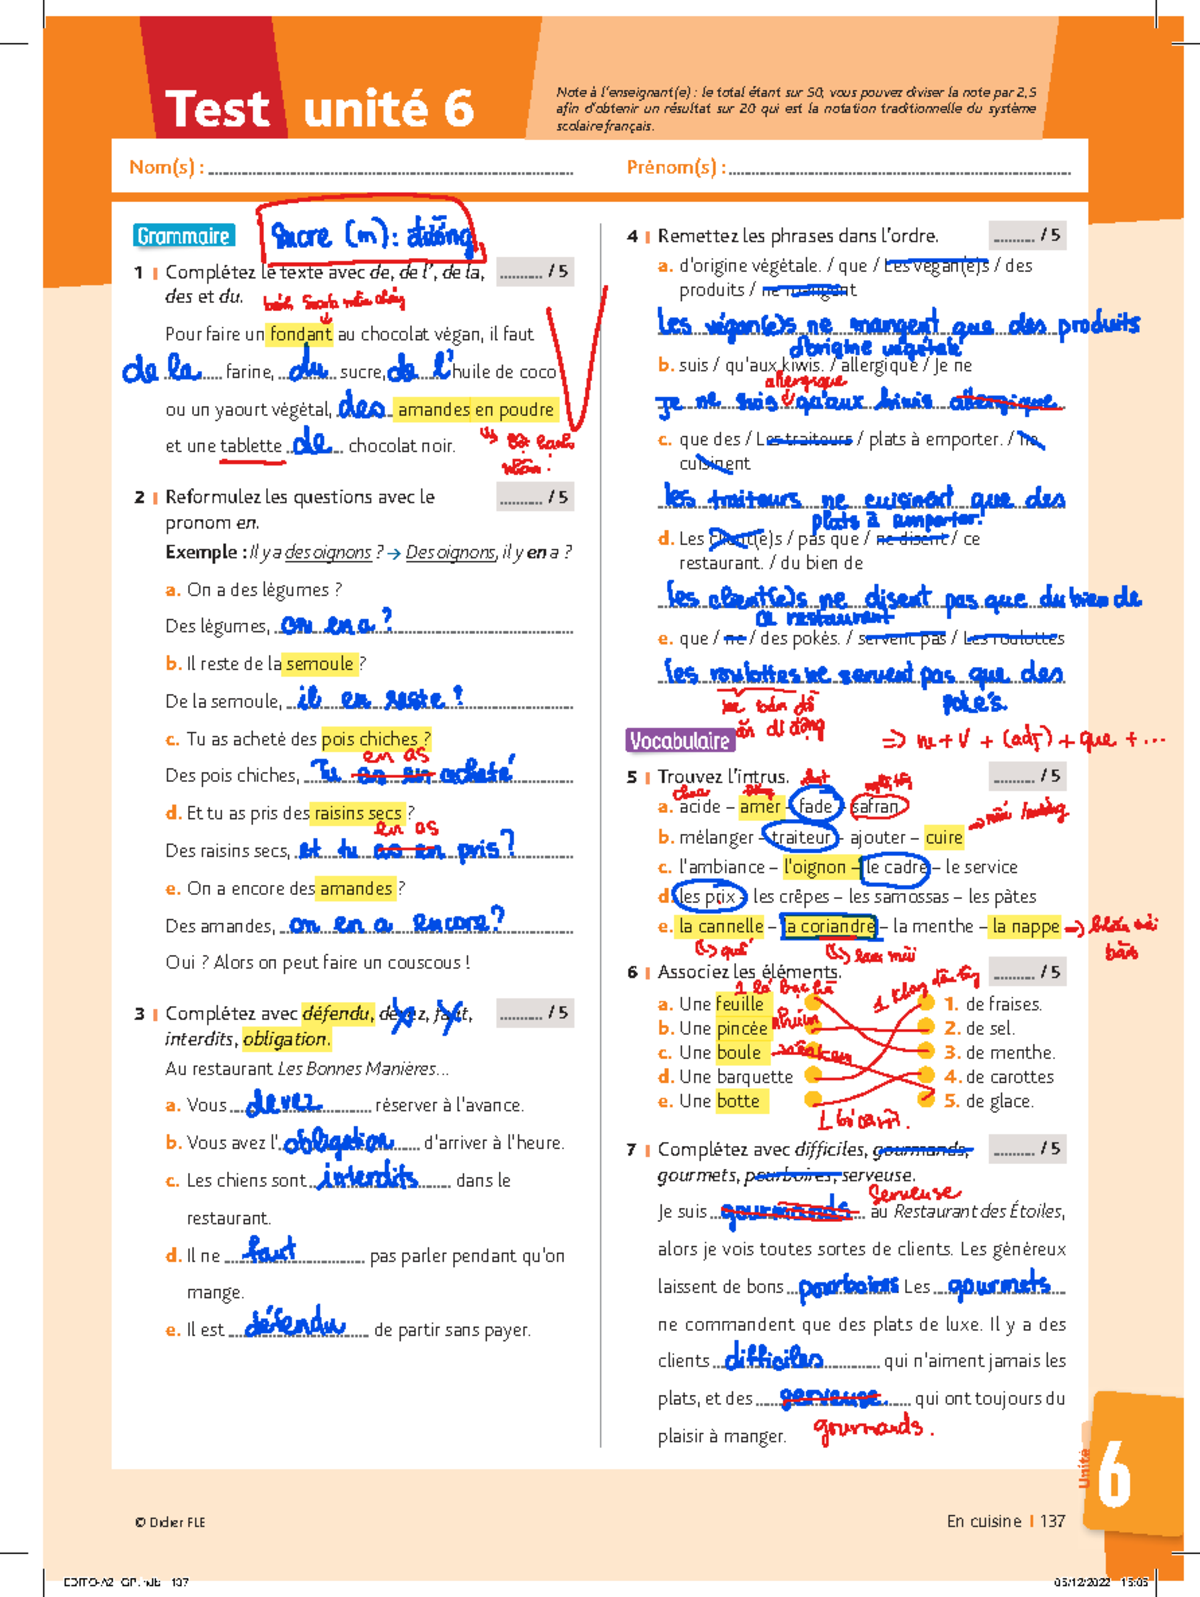 Test unité 6
Note à l'enseignant(e) : le total étant sur 50, vous pouvez diviser la note par 2,5
afin d'obtenir un résultat sur 20 qui est la notation traditionnelle du système
scolaire français.
Nom(s) :
Prénom(s) :
Grammaire
Sucre (m): đường
1 Complétez le texte avec de, de l', de la,
des et du.
.......... / 5
Pour faire un fondant au chocolat végan, il faut
de la farine, du sucre, de l' huile de coco
ou un yaourt végétal, des amandes en poudre
et une tablette de chocolat noir.
2 Reformulez les questions avec le
pronom en.
.......... / 5
Exemple : Il y a des oignons ? → Des oignons, il y en a ?
a. On a des légumes ?
Des légumes, on en a ?
b. Il reste de la semoule ?
De la semoule, il en reste ?
c. Tu as acheté des pois chiches ?
en as
Des pois chiches, Tu as en acheté
d. Et tu as pris des raisins secs ?
en as
Des raisins secs, et tu as en pris ?
e. On a encore des amandes ?
Des amandes, on en a encore ?
Oui ? Alors on peut faire un couscous !
3 Complétez avec défendu, devez, faut,
interdits, obligation.
.......... / 5
Au restaurant Les Bonnes Manières...
a. Vous devez réserver à l'avance.
b. Vous avez l' obligation d'arriver à l'heure.
c. Les chiens sont interdits dans le
restaurant.
d. Il ne faut pas parler pendant qu'on
mange.
e. Il est défendu de partir sans payer.
4 Remettez les phrases dans l'ordre.
.......... / 5
a. d'origine végétale. / que / Les végan(e)s / des
produits / ne mangent
Les végan(e)s ne mangent que des produits
d'origine végétale
b. suis / qu'aux kiwis. / allergique / Je ne
allergique
Je ne suis qu'aux kiwis allergique
c. que des / Les traiteurs / plats à emporter. / ne
cuisinent
les traiteurs ne cuisinent que des
plats à emporter.
d. Les client(e)s / pas que / ne disent / ce
restaurant. / du bien de
les client(e)s ne disent pas que du bien de
ce restaurant
e. que / ne / des pokés. / servent pas / Les roulottes
les roulottes ne servent pas que des
pokés.
xe bán đồ
ăn di động
Vocabulaire
=> ne + V + (adj) + que + ...
5 Trouvez l'intrus.
.......... / 5
a. acide – amer – fade – safran
b. mélanger – traiteur – ajouter – cuire
c. l'ambiance – l'oignon – le cadre – le service
d. les prix – les crêpes – les samossas – les pâtes
e. la cannelle – la coriandre – la menthe – la nappe
6 Associez les éléments.
.......... / 5
a. Une feuille
1. de fraises.
b. Une pincée
2. de sel.
c. Une boule
3. de menthe.
d. Une barquette
4. de carottes
e. Une botte
5. de glace.
7 Complétez avec difficiles, gourmands,
gourmets, pourboires, serveuse.
.......... / 5
Serveuse
Je suis gourmands au Restaurant des Étoiles,
alors je vois toutes sortes de clients. Les généreux
laissent de bons pourboires Les gourmets
ne commandent que des plats de luxe. Il y a des
clients difficiles qui n'aiment jamais les
plats, et des serveuse qui ont toujours du
plaisir à manger. gourmands.
Unité 6
© Didier FLE
En cuisine | 137
05/12/2022